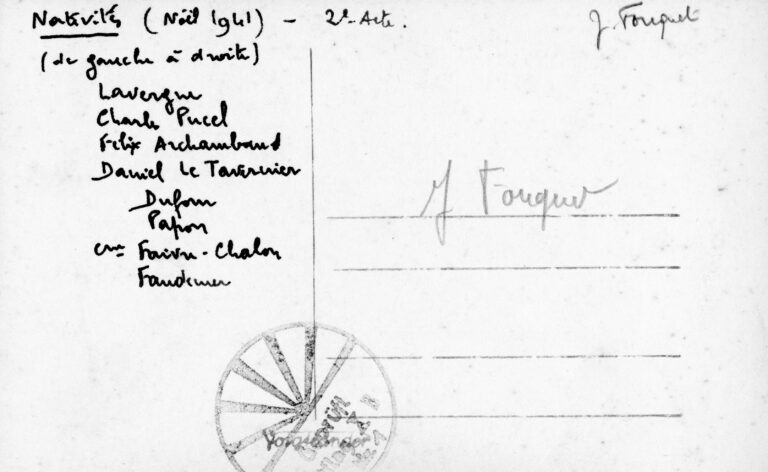 Nativité (Noël 1941) - 2e Acte.
J. Fouquet
(de gauche à droite)
Lavergne
Charles Pucel
Félix Archambaud
Daniel Le Tavernier
Dufour
Papon
Faivre-Chalon
J Fouquet
Voigtländer
Geprüft